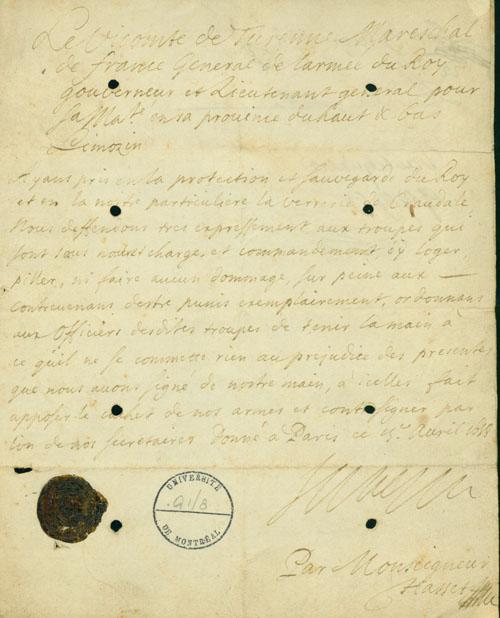 Le Vicomte de Turenne Mareschal
de france General de larmée du Roy
gouverneur et Lieutenant general pour
sa Maté en sa province du haut & bas
Limozin
Ayans pris en la protection et sauvegarde du Roy
et en la nostre particuliere la verrerie de
Nous deffendons tres expressement aux troupes qui
sont sous nostre charge, et commandement dy loger,
piller, ni faire aucun dommage, sur peine aux
contrevenans destre punis exemplairement, ordonnans
aux Officiers desdites troupes de tenir la main à
ce quil ne se commette rien au prejudice des presentes
que nous avons signé de nostre main, à icelles fait
apposer le cachet de nos armes et contresigner par
lun de nos secretaires donné à Paris ce Avril
Turenne
UNIVERSITÉ
DE MONTRÉAL
Par Monseigneur